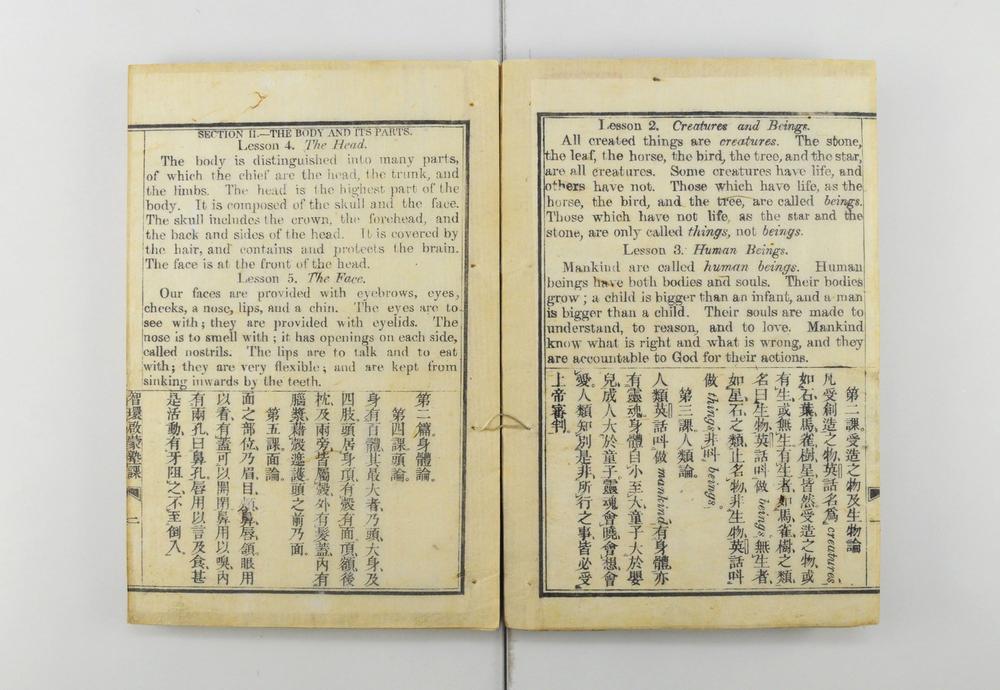 Lesson 2. Creatures and Beings.
All created things are creatures. The stone,
the leaf, the horse, the bird, the tree, and the star,
are all creatures. Some creatures have life, and
others have not. Those which have life, as the
horse, the bird, and the tree, are called beings.
Those which have not life, as the star and the
stone, are only called things, not beings.
Lesson 3. Human Beings.
Mankind are called human beings. Human
beings have both bodies and souls. Their bodies
grow; a child is bigger than an infant, and a man
is bigger than a child. Their souls are made to
understand, to reason, and to love. Mankind
know what is right and what is wrong, and they
are accountable to God for their actions.
第二課。受造之物及生物論
凡受創造之物、英話名爲 creatures,
如石、葉、馬、雀、樹、星皆然。受造之物、或
有生、或無生、有生者、如馬雀樹之類、
名曰生物、英話呌做 beings, 無生者、
如星石之類、止名物、非生物、英話呌
做 things, 非呌 beings.
第三課人類論。
人類英話呌做 mankind, 有身體、亦
有靈魂、身體自小至大、童子大於嬰
兒、成人大於童子。靈魂會曉、會想、會
愛、人類知別是非、所行之事、皆必受
上帝審判。
SECTION II.—THE BODY AND ITS PARTS.
Lesson 4. The Head.
The body is distinguished into many parts,
of which the chief are the head, the trunk, and
the limbs. The head is the highest part of the
body. It is composed of the skull and the face.
The skull includes the crown, the forehead, and
the back and sides of the head. It is covered by
the hair, and contains and protects the brain.
The face is at the front of the head.
Lesson 5. The Face.
Our faces are provided with eyebrows, eyes,
cheeks, a nose, lips, and a chin. The eyes are to
see with; they are provided with eyelids. The
nose is to smell with; it has openings on each side,
called nostrils. The lips are to talk and to eat
with; they are very flexible; and are kept from
sinking inwards by the teeth.
第二篇身體論。
第四課頭論。
身有百體、其最大者、乃頭、大身、及
四肢、頭居身頂、有殼、有面、頂、額、後
枕、及兩旁、皆屬殼、外有髮蓋、內有
腦漿、藉殼遮護、頭之前乃面。
第五課面論。
面之部位、乃眉、目、頰、鼻、唇、頷、眼用
以看、有蓋可以開閉、鼻用以嗅、內
有兩孔、曰鼻孔、唇用以言及食、甚
是活動、有牙阻之、不至倒入。
智環啟蒙塾課
二